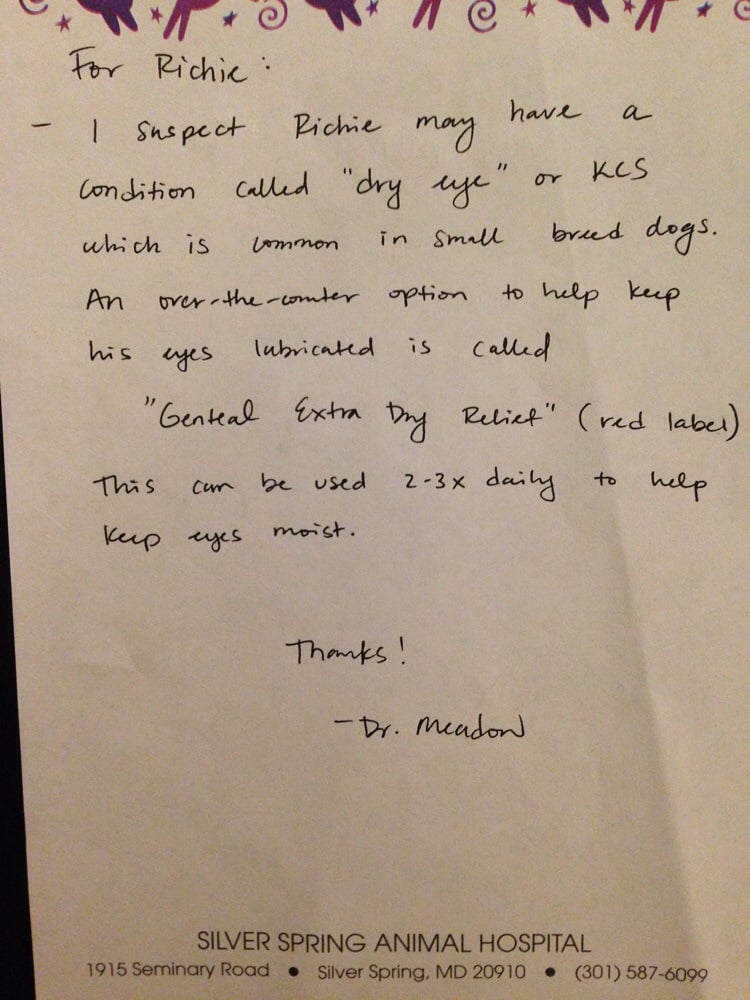 For Richie:
- I suspect Richie may have a
condition called "dry eye" or KCS
which is common in small breed dogs.
An over-the-counter option to help keep
his eyes lubricated is called
"Genteal Extra Dry Relief" (red label)
This can be used 2-3x daily to help
keep eyes moist.
Thanks!
-Dr. Meadow
SILVER SPRING ANIMAL HOSPITAL
1915 Seminary Road • Silver Spring, MD 20910 • (301) 587-6099